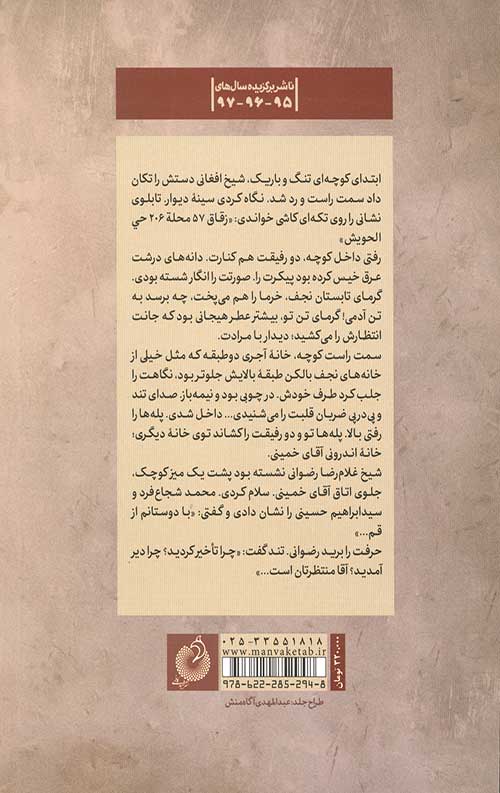 ناشر برگزیده سال‌های
۹۵-۹۶-۹۷
ابتدای کوچه‌ای تنگ و باریک، شیخ افغانی دستش را تکان
داد سمت راست و رد شد. نگاه کردی سینهٔ دیوار. تابلوی
نشانی را روی تکه‌ای کاشی خواندی: «زقاق ۵۷ محلة ۲۰۶ حي
الحویش»
رفتی داخل کوچه، دو رفیقت هم کنارت. دانه‌های درشت
عرق خیس کرده بود پیکرت را. صورتت را انگار شسته بودی.
گرمای تابستان نجف، خرما را هم می‌پخت، چه برسد به
تن آدمی! گرمای تن تو، بیشتر عطر هیجانی بود که جانت
انتظارش را می‌کشید؛ دیدار با مرادت.
سمت راست کوچه، خانهٔ آجری دوطبقه که مثل خیلی از
خانه‌های نجف بالکن طبقهٔ بالایش جلوتر بود، نگاهت را
جلب کرد طرف خودش. در چوبی بود و نیمه‌باز. صدای تند
و پی‌درپی ضربان قلبت را می‌شنیدی... داخل شدی. پله‌ها را
رفتی بالا. پله‌ها تو و دو رفیقت را کشاند توی خانهٔ دیگری؛
خانهٔ اندرونی آقای خمینی.
شیخ غلام‌رضا رضوانی نشسته بود پشت یک میز کوچک،
جلوی اتاق آقای خمینی. سلام کردی. محمد شجاع‌فرد و
سیدابراهیم حسینی را نشان دادی و گفتی: «با دوستانم از
قم...»
حرفت را برید رضوانی. تند گفت: «چرا تأخیر کردید؟ چرا دیر
آمدید؟ آقا منتظرتان است...»
۰۲۵-۳۳۵۵۱۸۱۸
www.manvaketab.ir
978-622-285-294-8
۳۲۰,۰۰۰ تومان
طراح جلد: عبدالمهدی آگاه‌منش